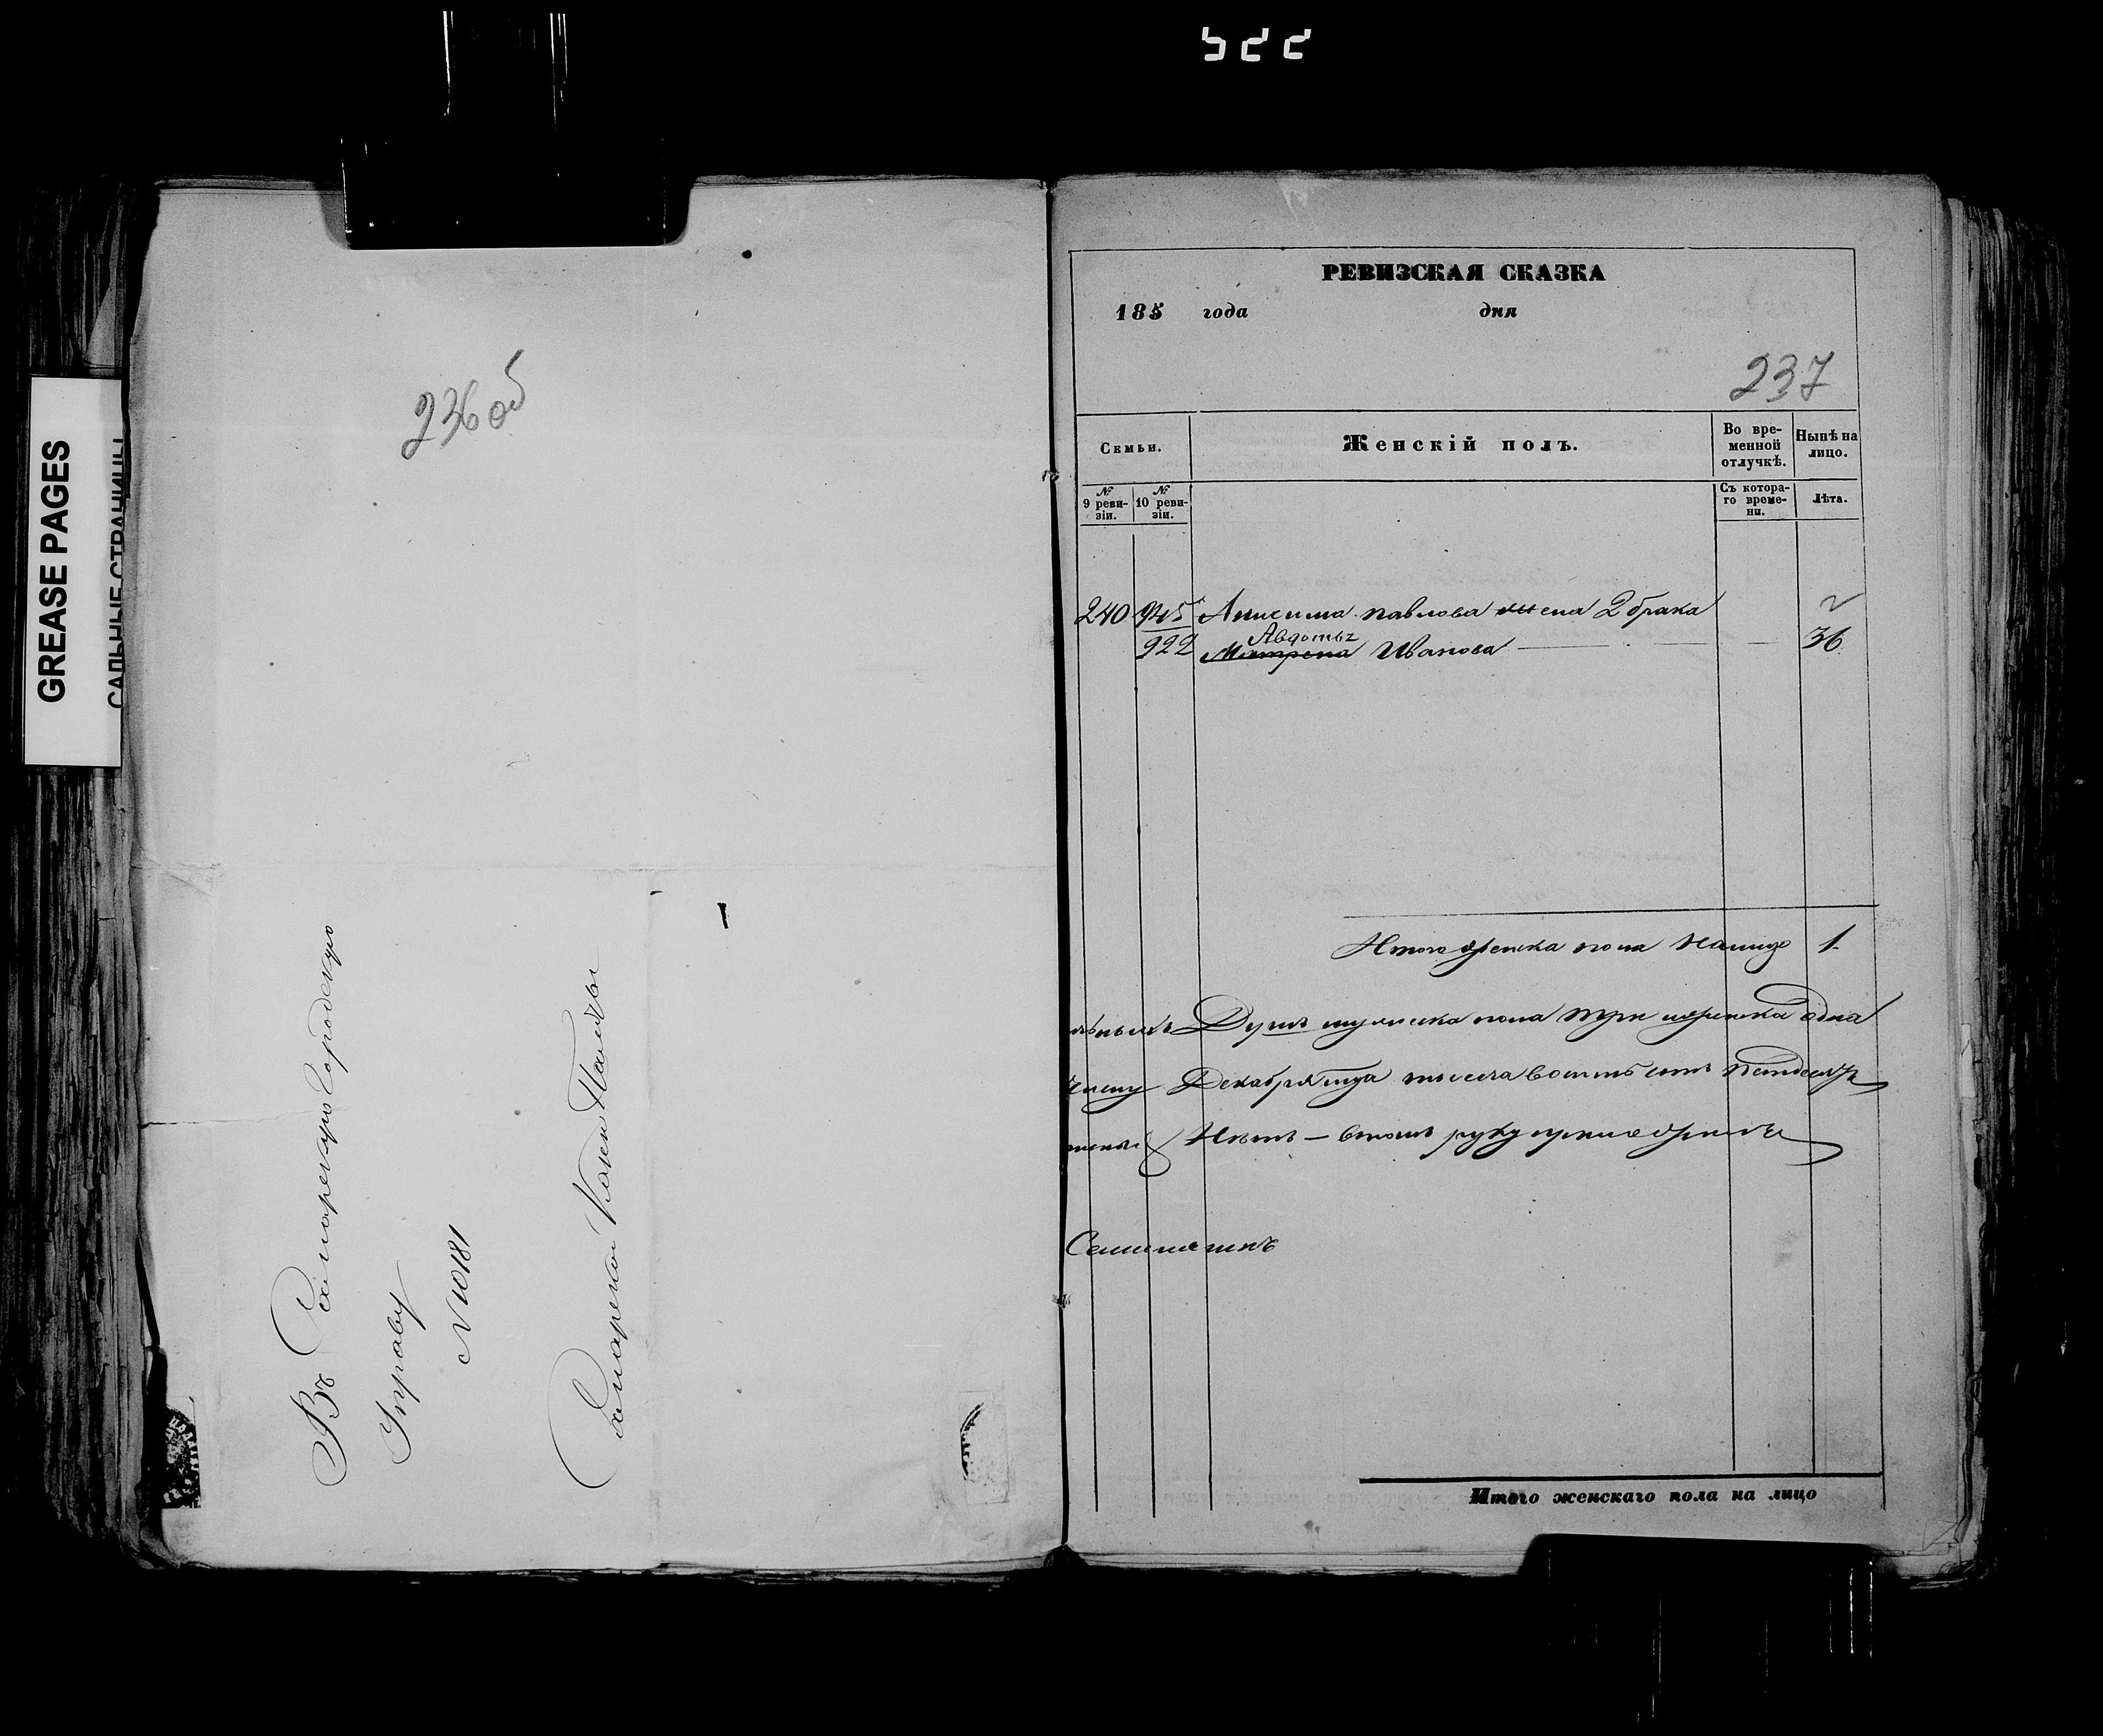 522
GREASE PAGES
САЛЬНЫЕ СТРАНИЦЫ
236 об
Въ Самарскую Городскую
Управу
№ 10181
Самарской Казен Палаты
РЕВИЗСКАЯ СКАЗКА
185 года дня
237
Семьи.
Женскій полъ.
Во вре-
менной
отлучкѣ.
Нынѣ на
лицо.
№
9 реви-
зіи.
№
10 реви-
зіи.
Съ котора-
го време-
ни.
Лѣта.
240 945 Анисима Павлова жена 2 брака
Авдотья
922 Матрена Иванова 36
Итого женска пола налицо 1
Душъ мужска пола три женска одна
Декабря тысеча восемь сотъ
Нѣтъ — втомъ руку приложилъ
Итого женскаго пола на лицо